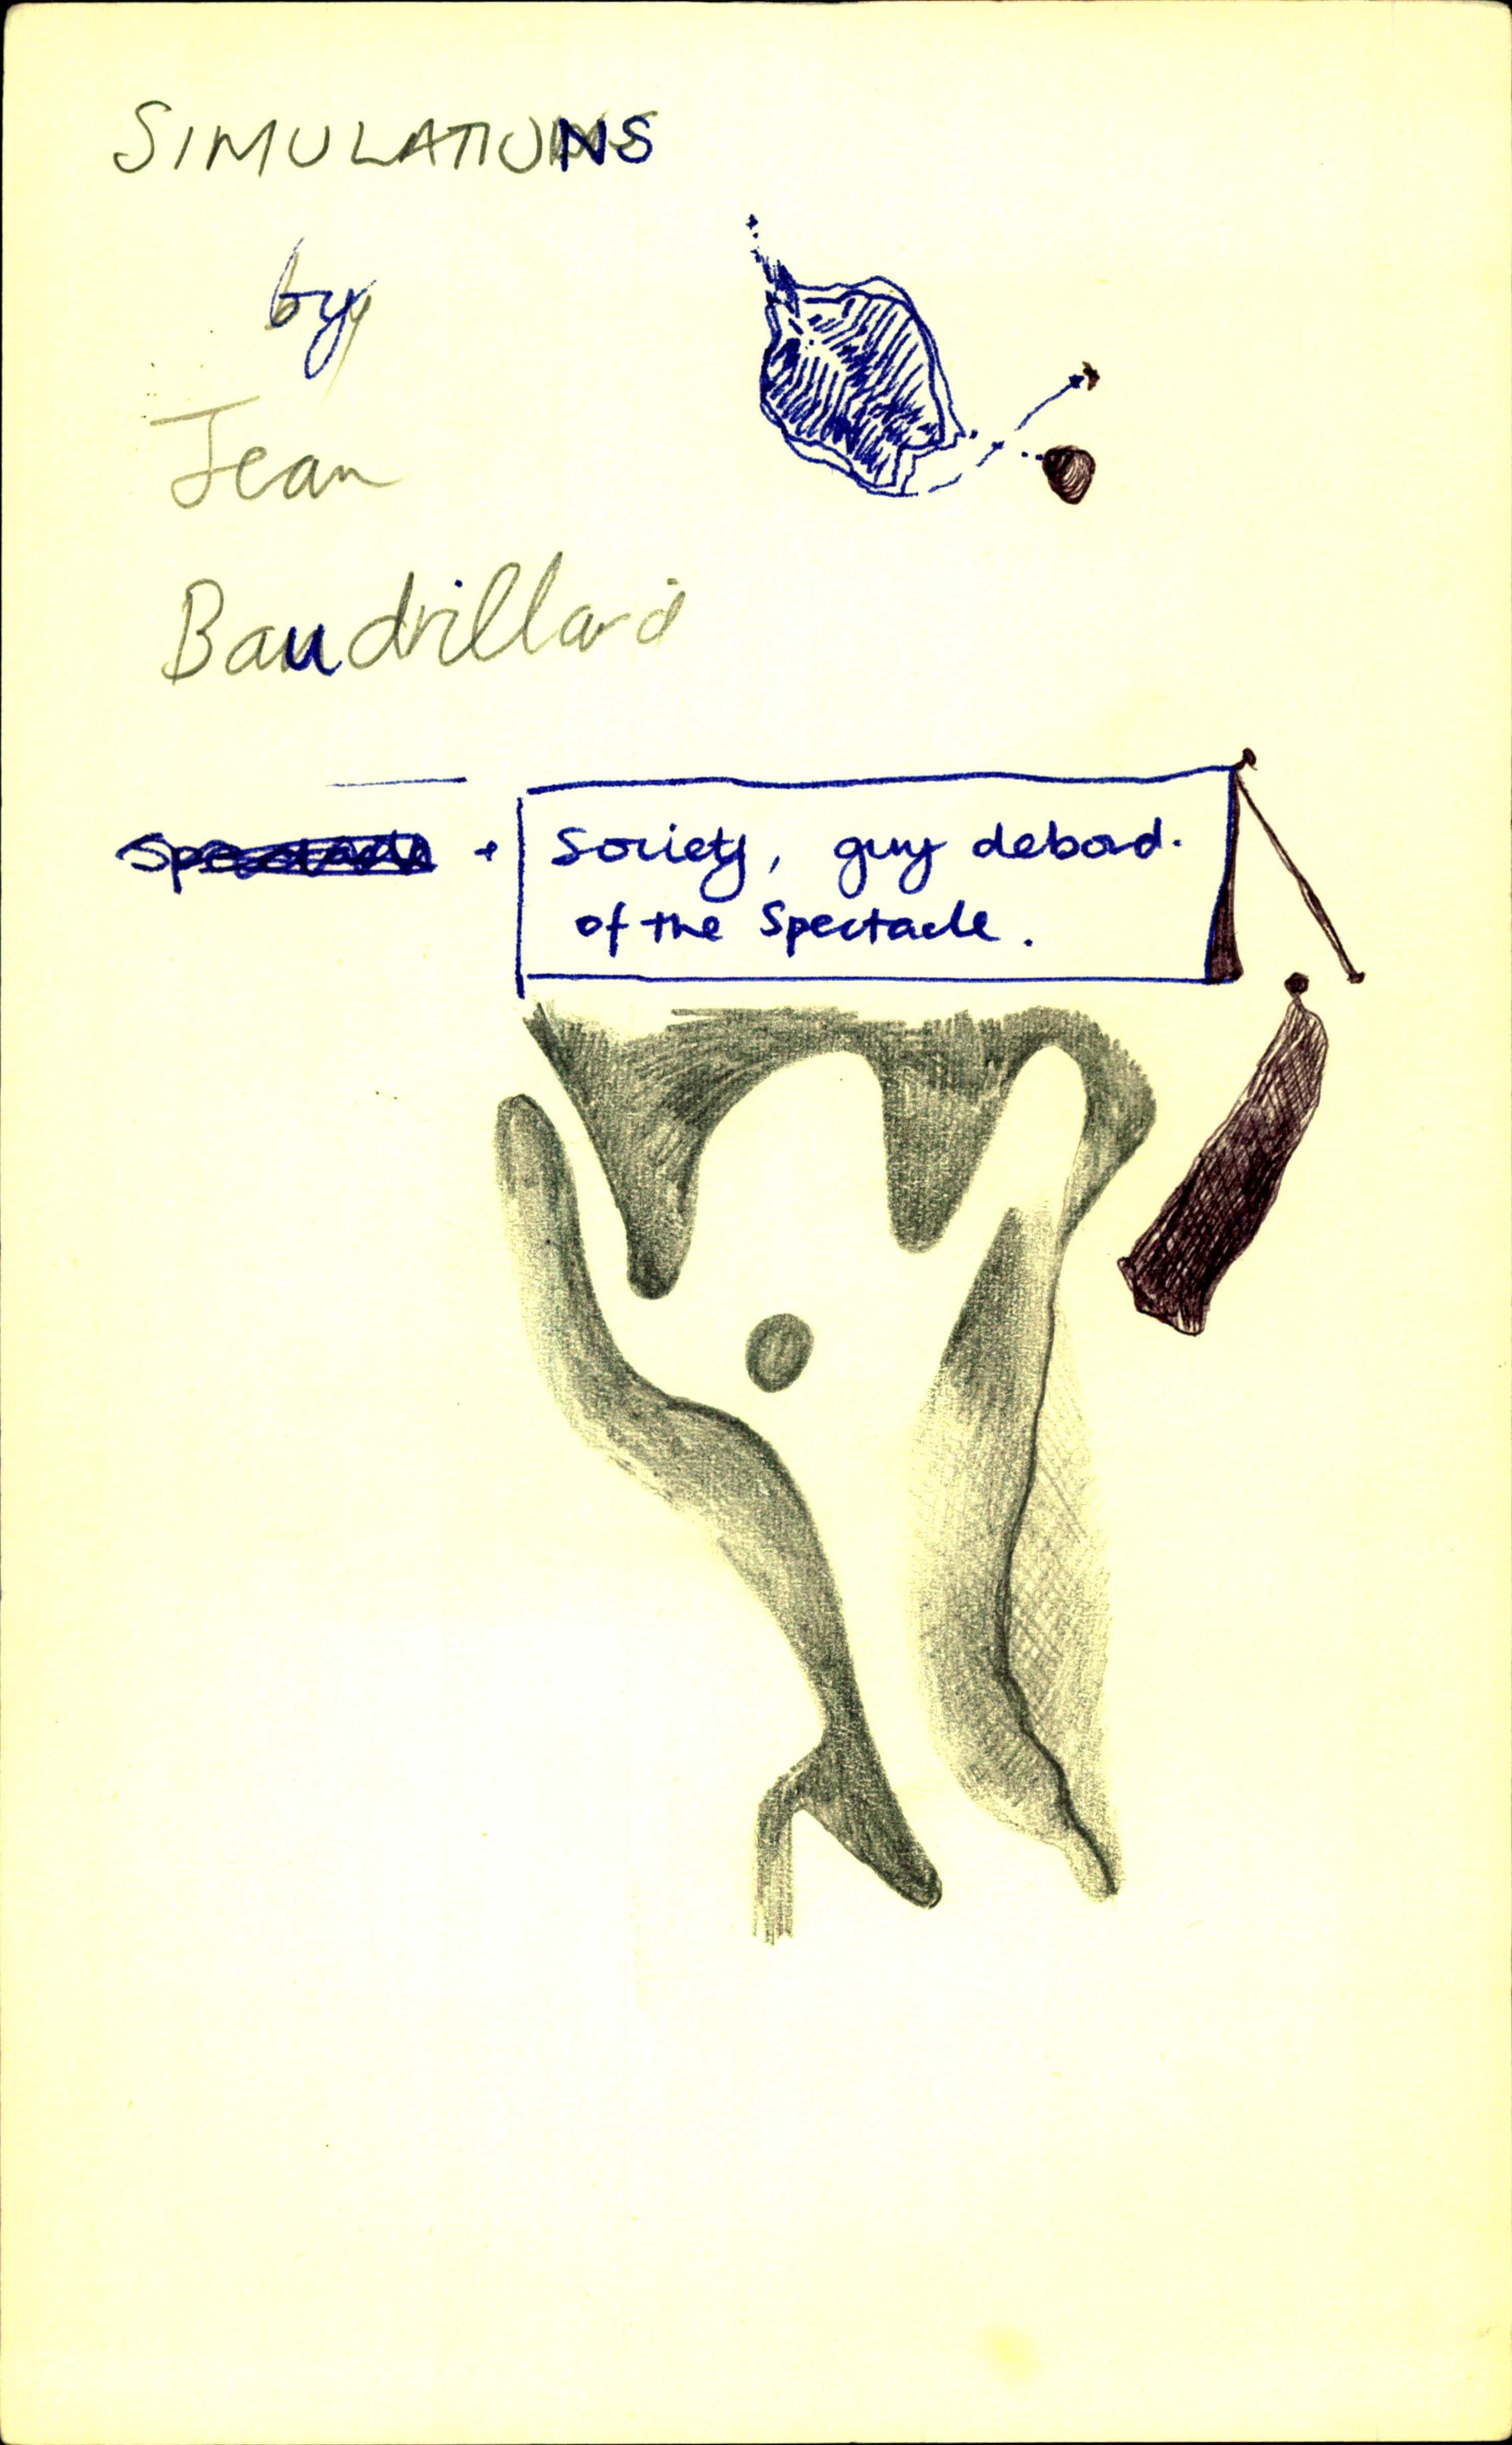 SIMULATIONS
by
Jean
Baudrillard
Society, guy debord.
of the Spectacle.